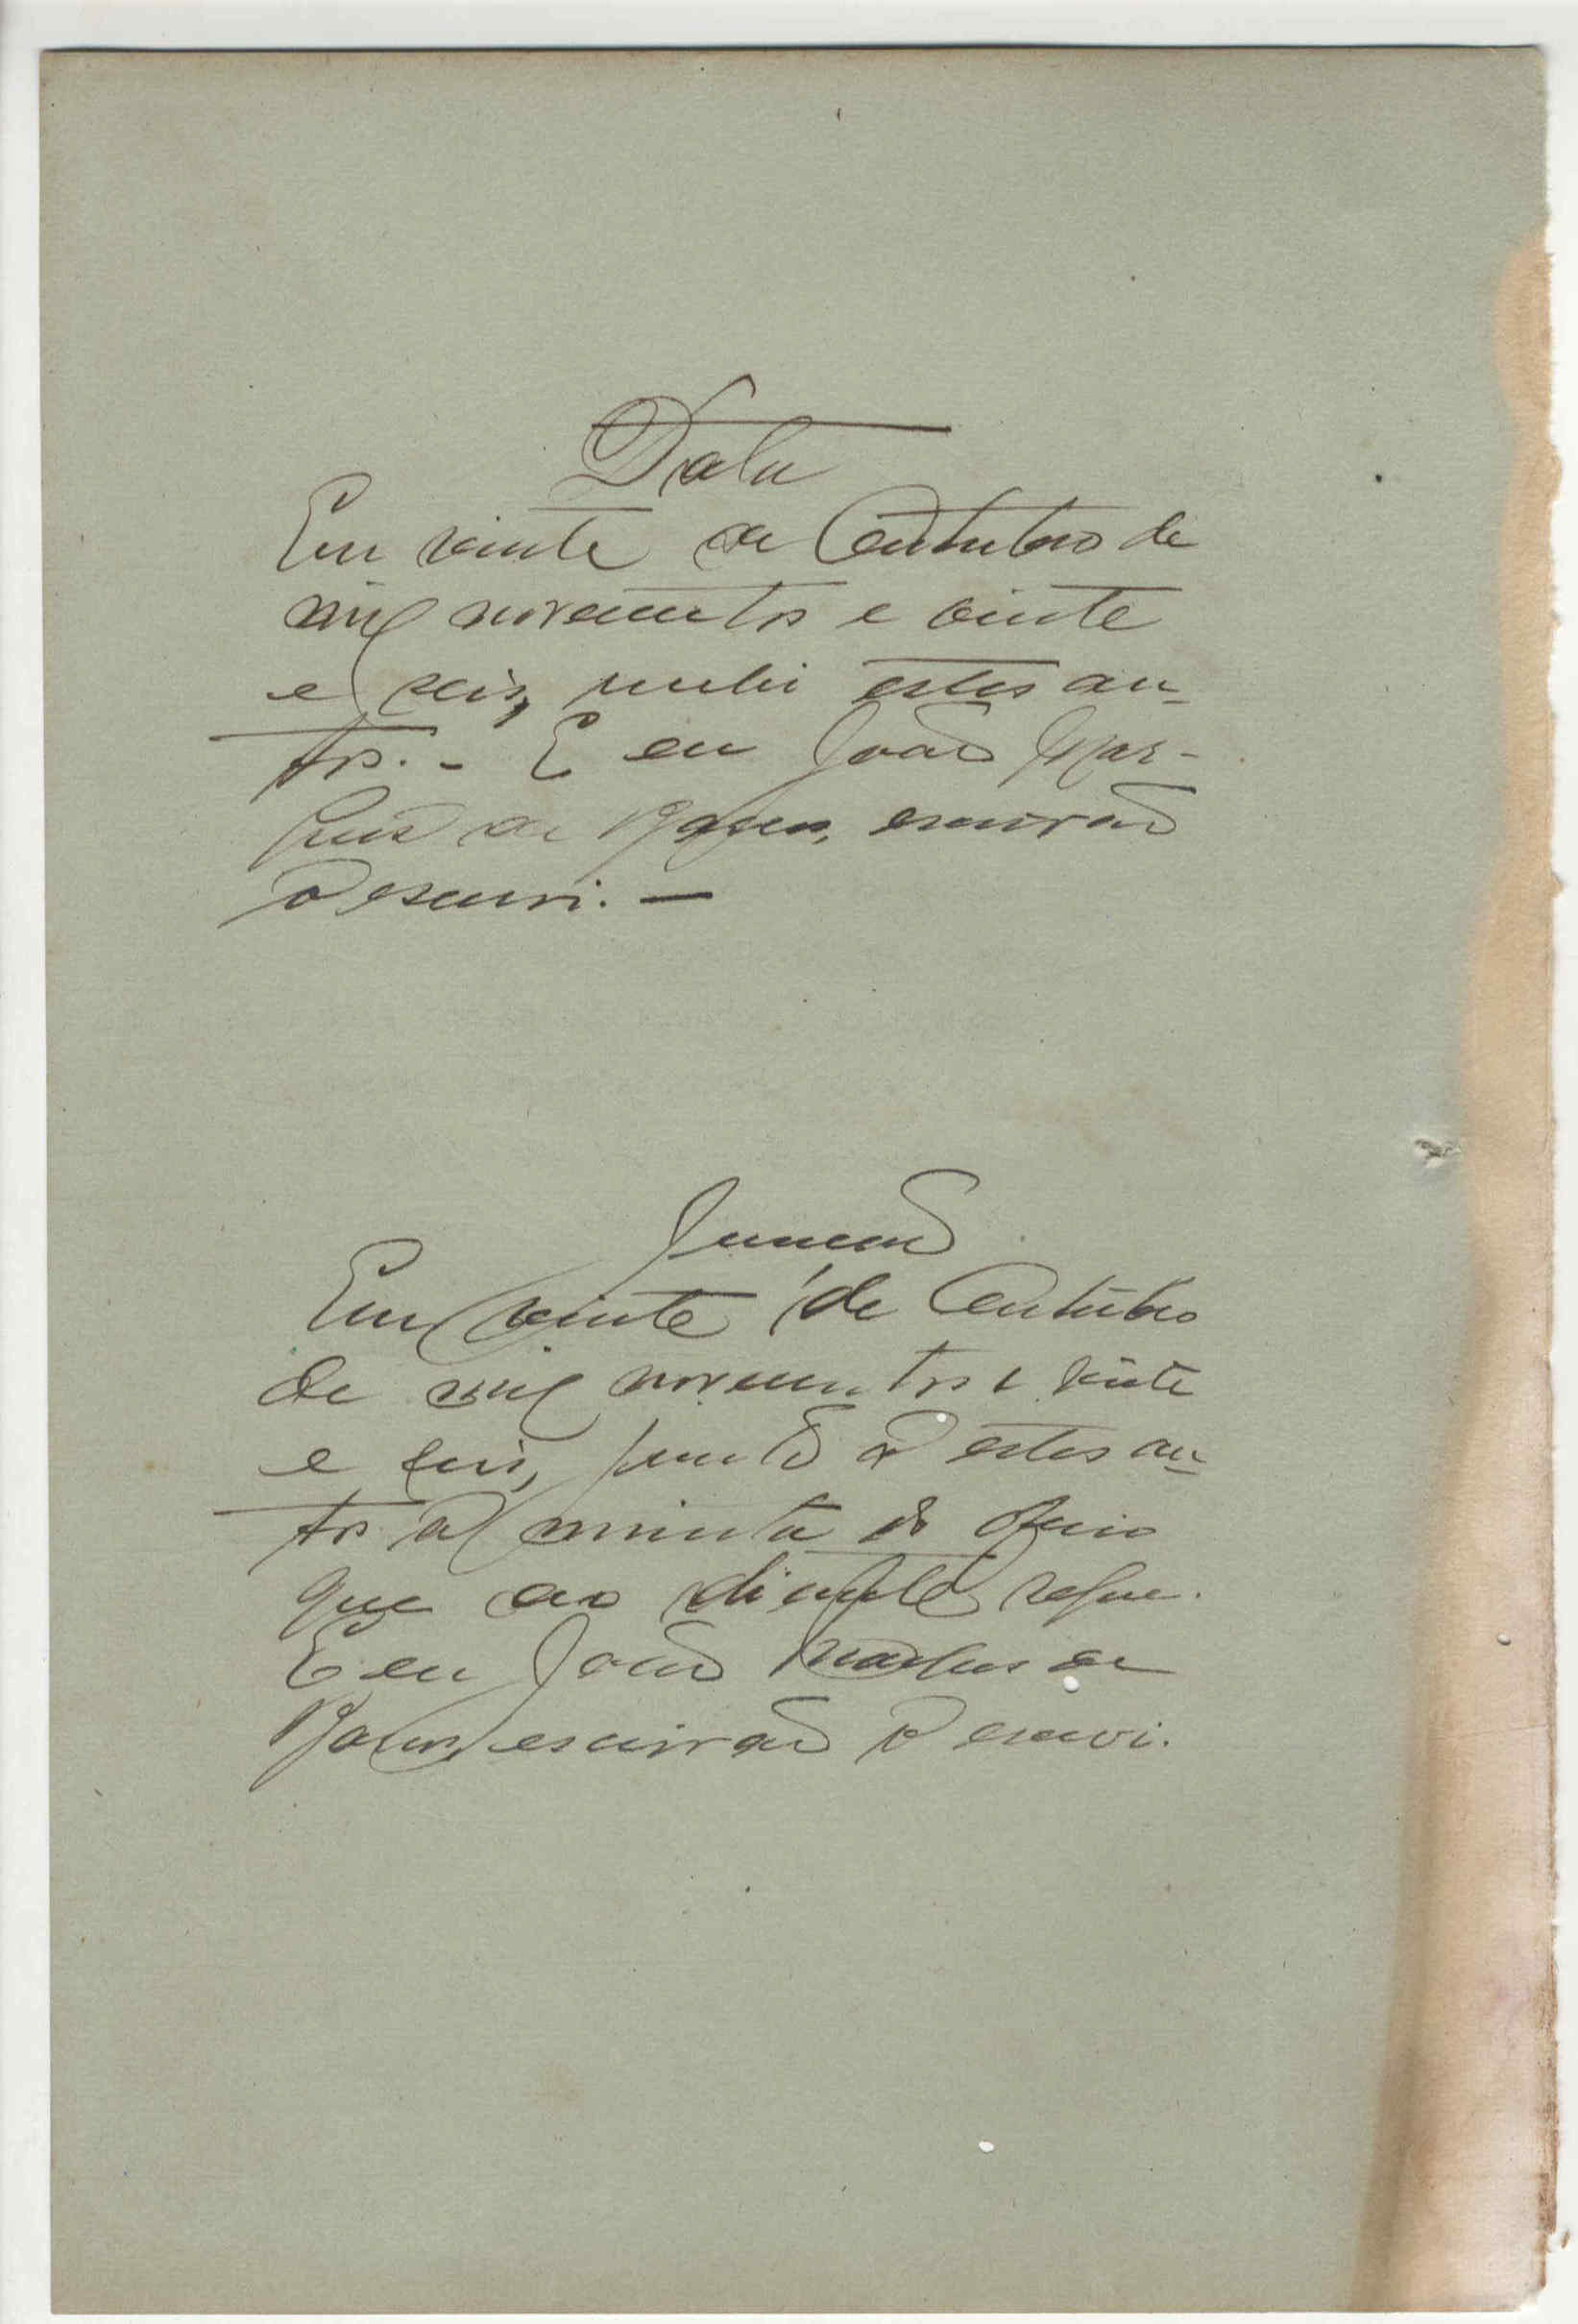 Data
Em vinte de Outubro de
mil novecentos e vinte
e seis, recebi estes au-
tos. - E eu João Mar-
ques de, escrivão
o escrevi. -
Juncção
Em vinte de Outubro
de mil novecentos e vinte
e seis, junto a estes au-
tos a minuta do officio
que ao diante segue.
E eu João Marques de
escrivão o escrevi.